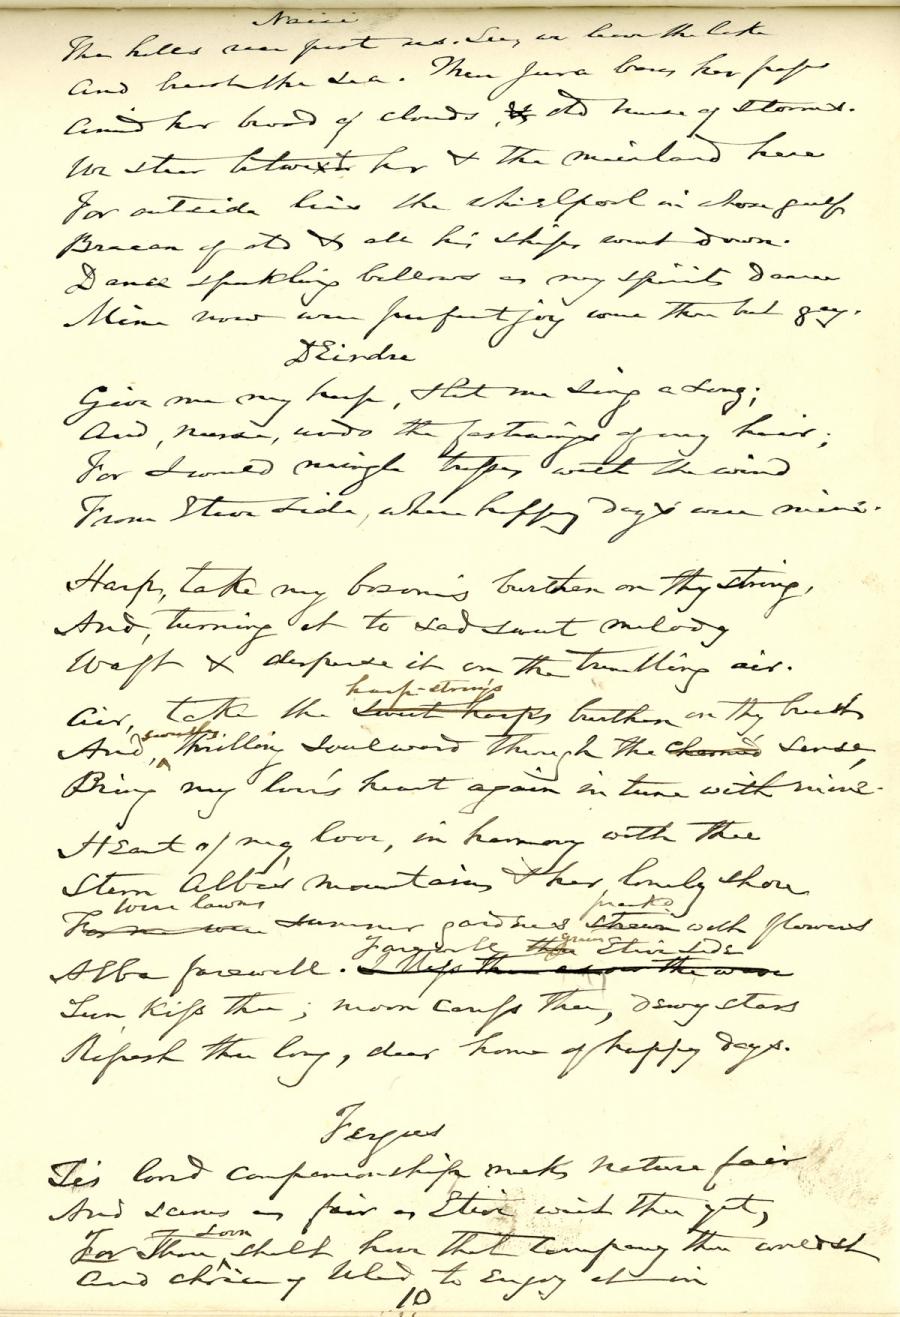 Naisi
The hills race past us. See, we leave the lake
And breast the sea. There Jura bares her paps
Amid her brood of clouds, old nurse of storms.
We steer betwixt her & the mainland here
For outside lies the whirlpool in whose gulf
Bracan of old & all his ships went down.
Dance sparkling billows as my spirits dance
Mine now were perfect joy were thou but gay.
DEirdre
Give me my harp, & let me sing a song;
And, nurse, undo the fastenings of my hair;
For I would mingle tresses with the wind
From Etive side, where happy days were mine.
Harp, take my bosom's burthen on thy string,
And, turning it to sad sweet melody
Waft & disperse it on the trembling air.
harp-string's
Air, take the sweet harps burthen on thy breast
sweetly
And, thrilling soulward through the charmed sense,
Bring my love's heart again in tune with mine.
HEart of my love, in harmony with thee
Stern Alba's mountains & her lonely shore
Were lawns prankd
For me were summer gardens strewn with flowers
Farewell thou green Etive side
Alba farewell. I kiss thee across the wave
Sun kiss thee; moon caress thee, dewy stars
Refresh thee long, dear home of happy days.
Fergus
Tis loved companionship makes nature fair
And scenes as fair as Etive wait thee yet,
Soon
For Thou shalt have that company thou wouldst
And choice of Ulad to Enjoy it in
10